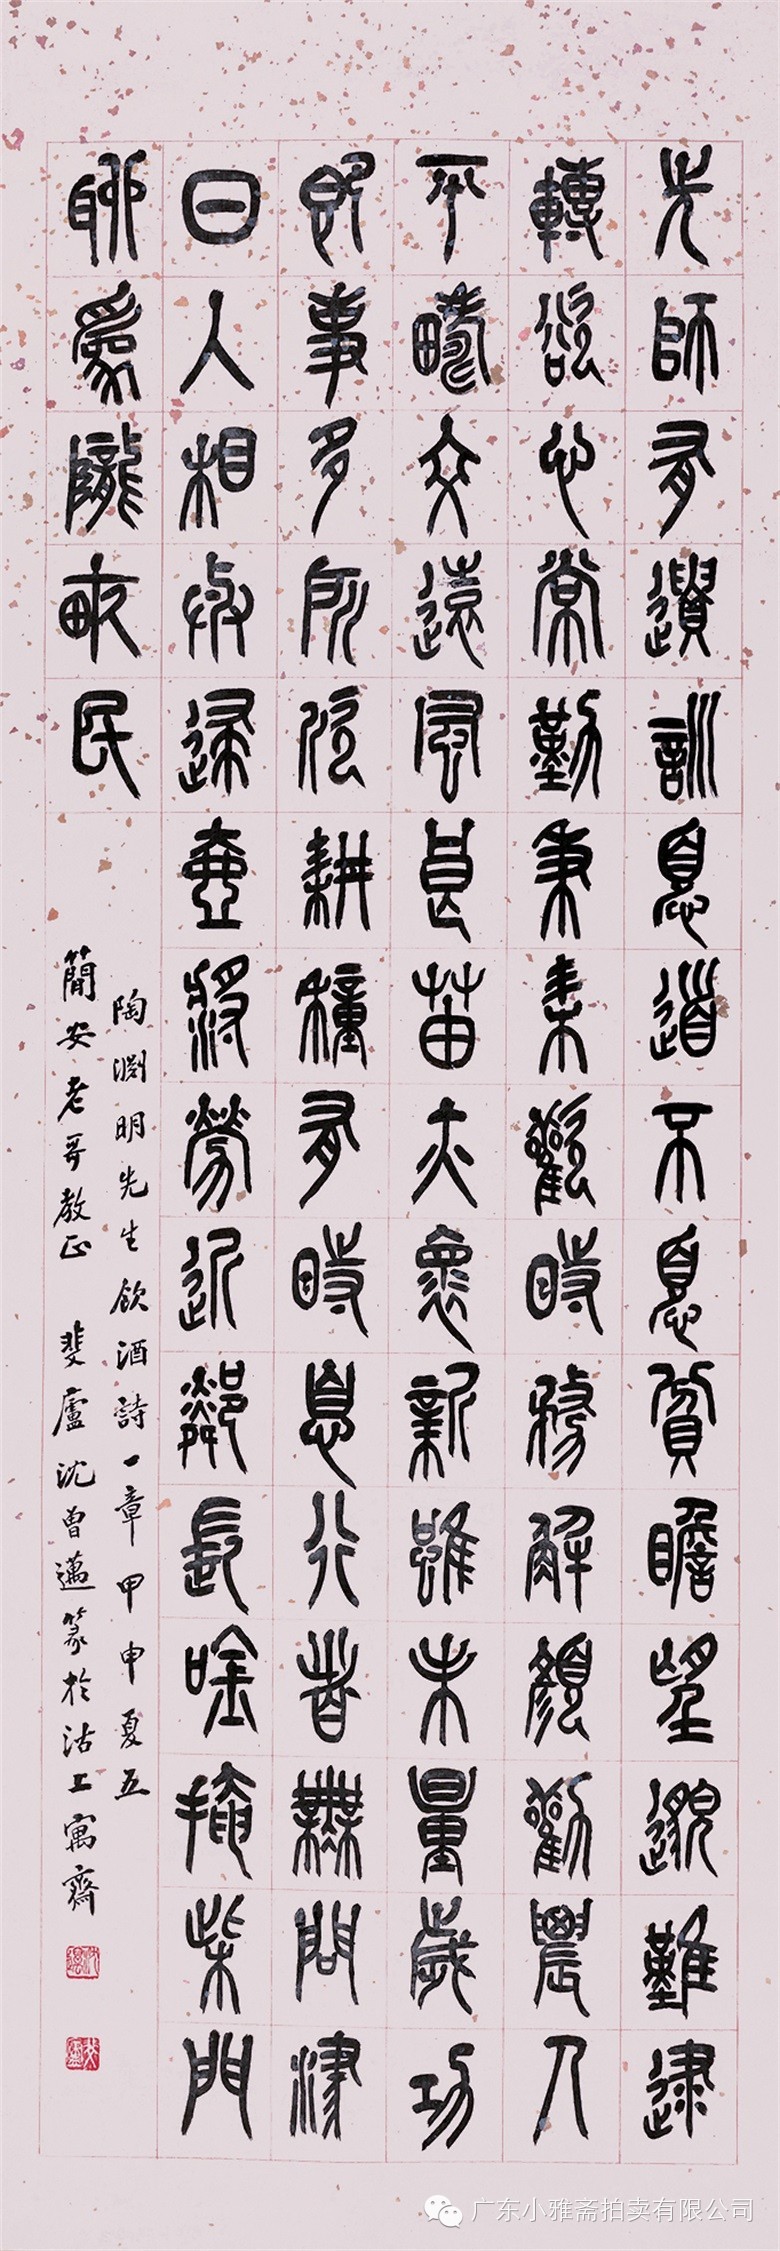 先師有遺訓息道不息貧瞻望邈難逮
轉欲心常勤秉耒歡時務解顏勸農人
平疇交遠風良苗亦懷新雖未量歲功
即事多所欣耕種有時息行者無問津
日人相與歸壺漿勞近鄰長唫掩柴門
聊為隴畝民
陶淵明先生飲酒詩一章甲申夏五
簡安老哥教正 斐廬沈曾邁篆於沽上寓齋
广东小雅斋拍卖有限公司